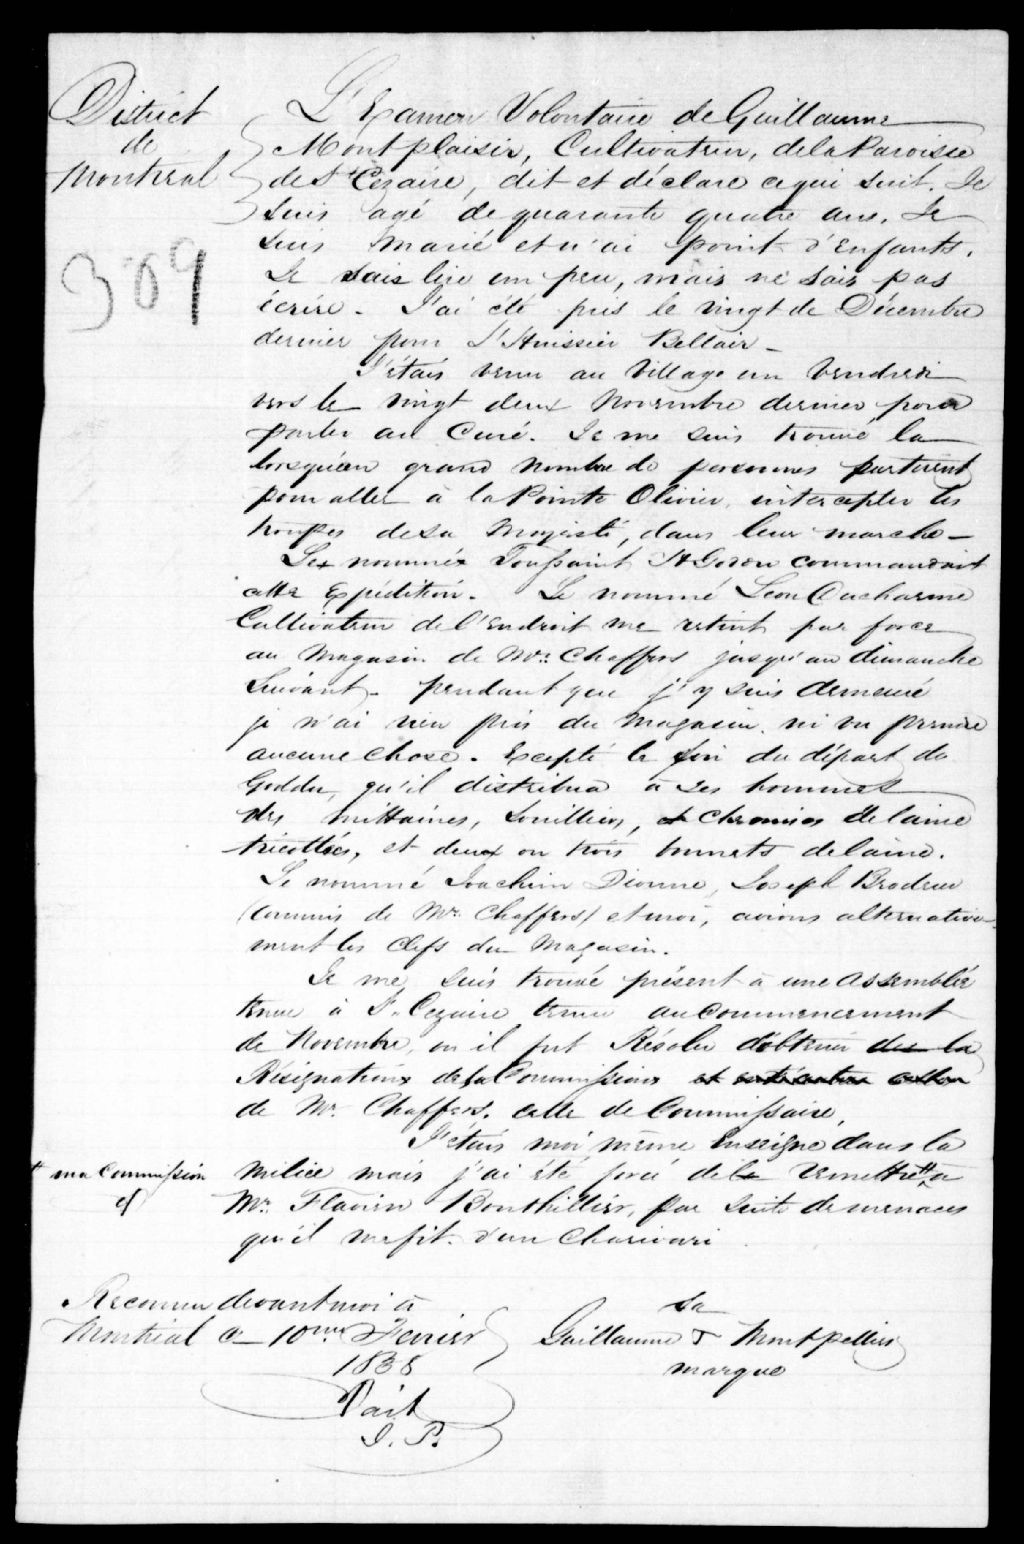 District
de
Montréal
309
L'Examen Volontaire de Guillaume
Montplaisir, Cultivateur, de la Paroisse
de St Cézaire, dit et déclare ce qui suit. Je
suis agé de quarante quatre ans. Je
suis marié et n'ai point d'Enfants.
Je sais lire un peu, mais ne sais pas
écrire. J'ai été pris le vingt de Décembre
dernier pour L'Huissier Bellair -
J'étais venu au Village un Vendredi
vers le vingt deux Novembre dernier pour
parler au Curé. Je me suis trouvé la
lorsqu'un grand nombre de personnes partirent
pour aller à la Pointe Olivier, intercepter les
troupes de sa Majesté, dans leur marche -
Le nommé Toussaint commandait
cette Expédition. Le nommé Léon Ducharme
Cultivateur de l'Endroit me retint par force
au Magasin de Mr. Chaffers jusqu'au dimanche
Suivant - pendant que j'y suis demeuré
je n'ai rien pris du Magasin, ni vu prendre
aucune chose. Excepté le soir du départ de
Goddu, qu'il distribua à ses hommes
des mittaines, souilliers, et chemises de laine
tricottées, et deux ou trois bonnets de laine.
Le nommé Joachim Dionne, Joseph Brodeur
(Commis de Mr. Chaffers) et moi, avions alternative-
ment les clefs du Magasin.
Je me suis trouvé présent à une assemblée
tenue à St. Cezaire tenue au commencement
de Novembre, ou il fut Résolu d'obtenir des la
Résignations de sa Commissions
de Mr. Chaffers. celle de Commissaire,
J'étais moi même Enseigne dans la
Milice mais j'ai été forcé de la remettre # a
# ma Commission
Mr. Flavien Bouthillier, par suite de menaces
qu'il me fit. d'un Charivari
Reconnu devant moi à
Montréal ce 10me Fevrier
1838
J. P.
sa
Guillaume + Montpellier
marque